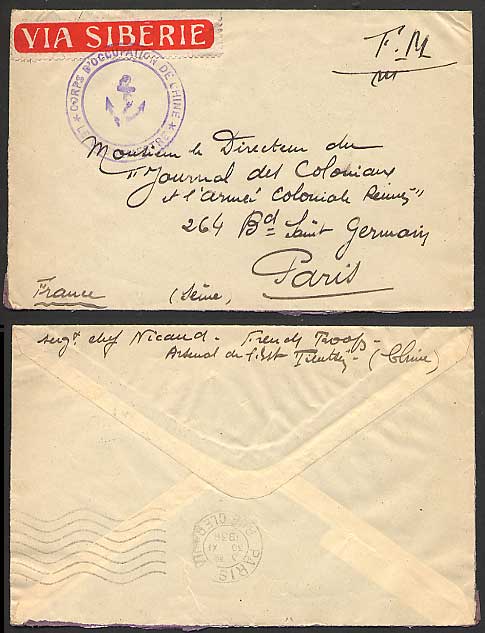 VIA SIBÉRIE
F.M
CORPS D'OCCUPATION DE CHINE
Monsieur le Directeur du
"Journal des Coloniaux
et l'armée Coloniale Réunis"
264 Bd Saint Germain
Paris
France (Seine)
Sergt chef Nicaud - French Troops -
Arsenal de l'Est Tientsin - (Chine)
PARIS VII
RUE CLER
30 XI
1938